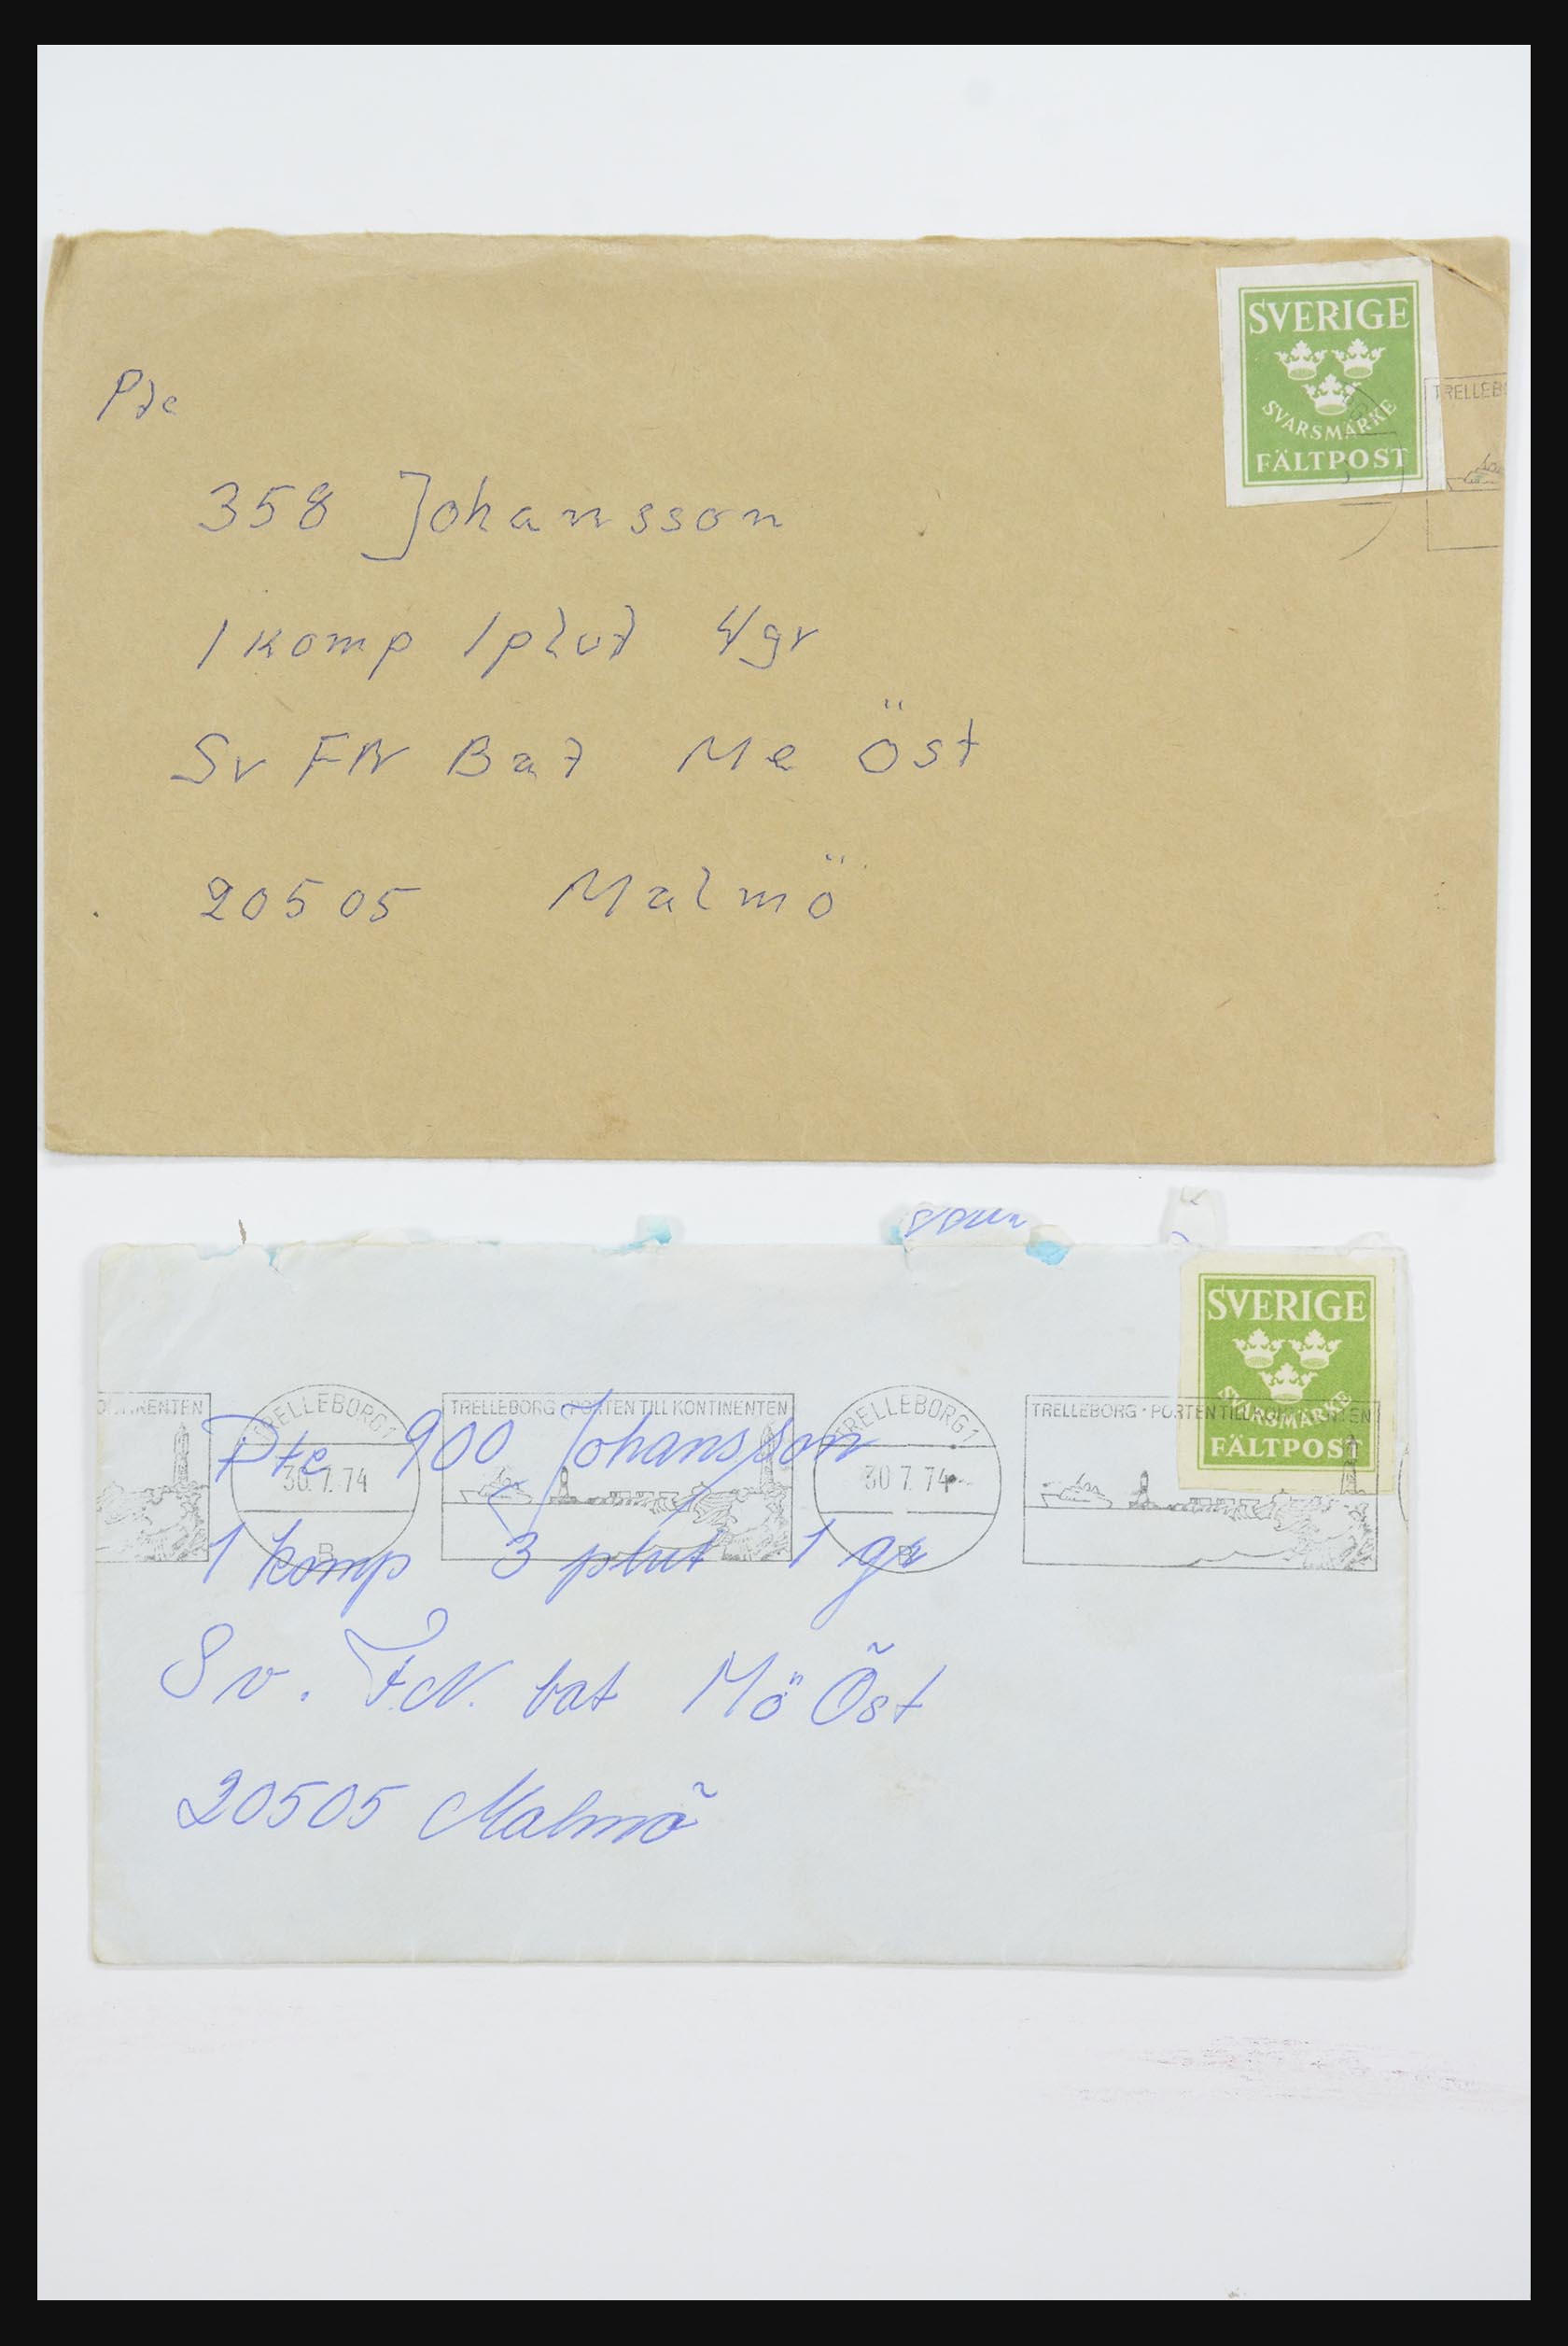 SVERIGE
SVARSMÄRKE
FÄLTPOST
TRELLEB
Pte
358 Johansson
1 komp 1 plut 4/gr
Sv FN Bat Me Öst
20505 Malmö
SVERIGE
SVARSMÄRKE
FÄLTPOST
NENTEN
TRELLEBORG 1
30.7.74
B
TRELLEBORG · PORTEN TILL KONTINENTEN
TRELLEBORG 1
30 7 74
B
TRELLEBORG · PORTEN TILL KONTINENTEN
Pte 900 Johansson
1 komp 3 plut 1 gr
Sv. F.N. bat Mö Öst
20505 Malmö